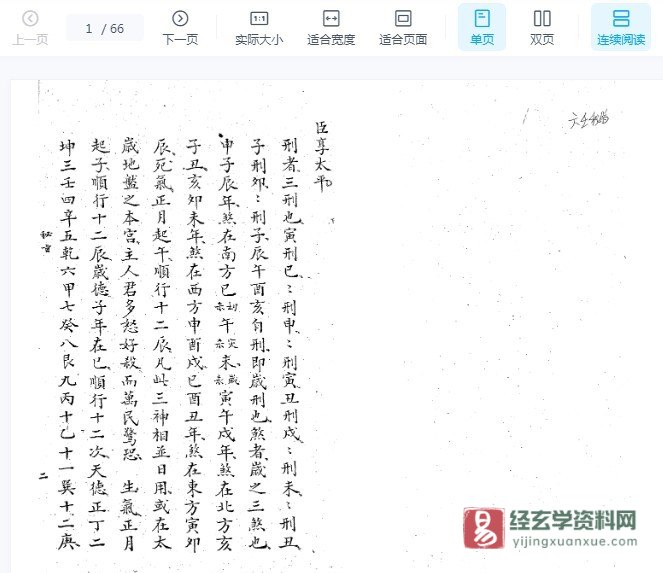 上一页
1 / 66
下一页
1:1
实际大小
适合宽度
适合页面
单页
双页
连续阅读
臣享太平
刑者三刑也寅刑巳：刑申：刑寅丑刑戌：刑未：刑丑
子刑卯：刑子辰午酉亥自刑即歲刑也煞者歲之三煞也
申子辰年煞在南方巳午未寅午戌年煞在北方亥
子丑亥卯未年煞在西方申酉戌巳酉丑年煞在東方寅卯
辰死氣正月起午順行十二辰凡此三神相並日用或在太
歲地盤之本宫主人君多怒好殺而萬民驚恐 生氣正月
起子順行十二辰歲德子年在巳順行十二次天德正丁二
坤三壬四辛五乾六甲七癸八艮九丙十乙十一巽十二庚
二
易
经玄学资料网
yijingxuanxue.com